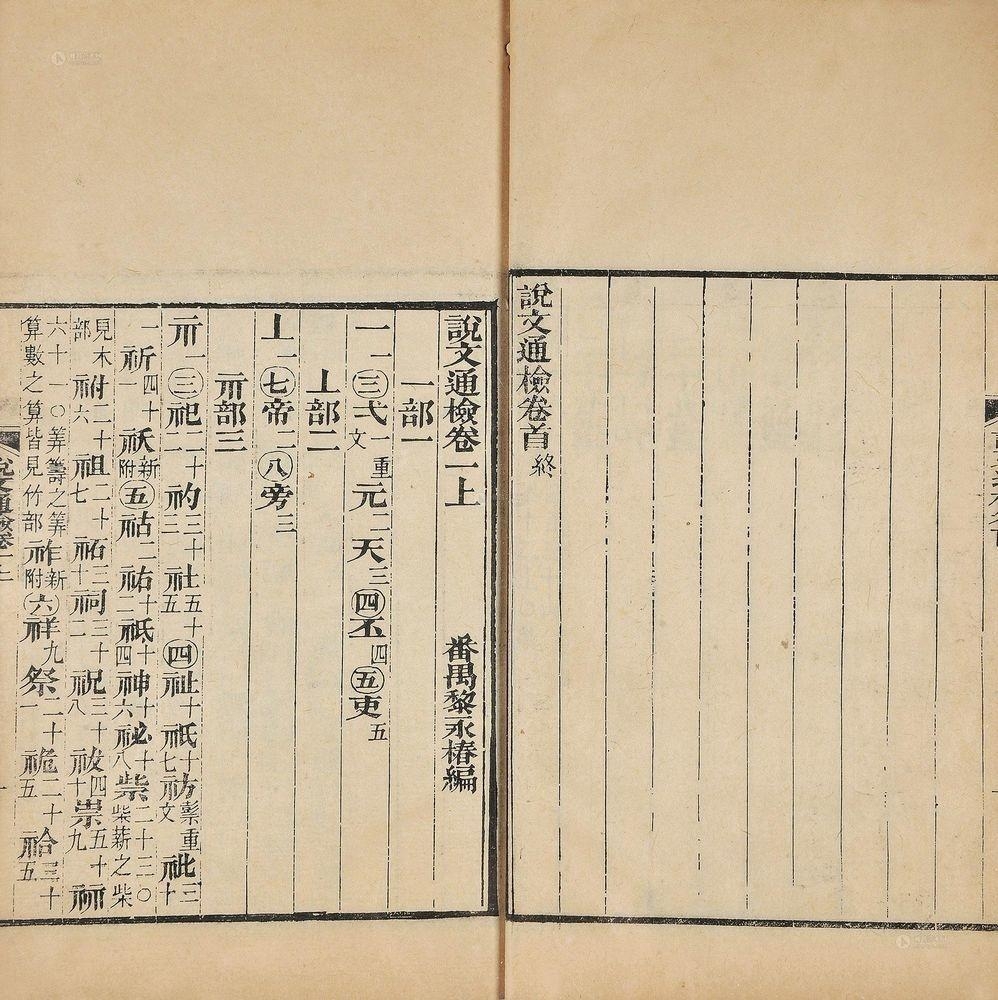 說文通檢卷首終
說文通檢卷一上 番禺黎永椿編
一部一
一一㊂弌一重文元二天三㊃丕四㊄吏五
丄部二
丄一㊆帝二㊇旁三
示部三
示一㊂祀二十二礿三十三社五十五㊃祉十祇十七祊𥛱重文䃾三十
一祈四十一祆新附㊄祜二祐十二祗十四神十六祕十八祡二十三〇柴薪之柴
見木部祔二十六祖二十七祏三十祠三十二祝三十八祓四十祟五十九祘
六十一〇筭籌之筭算數之算皆見竹部祚新附㊅祥九祭二十一祪二十五祫三十五
說文通檢卷一上